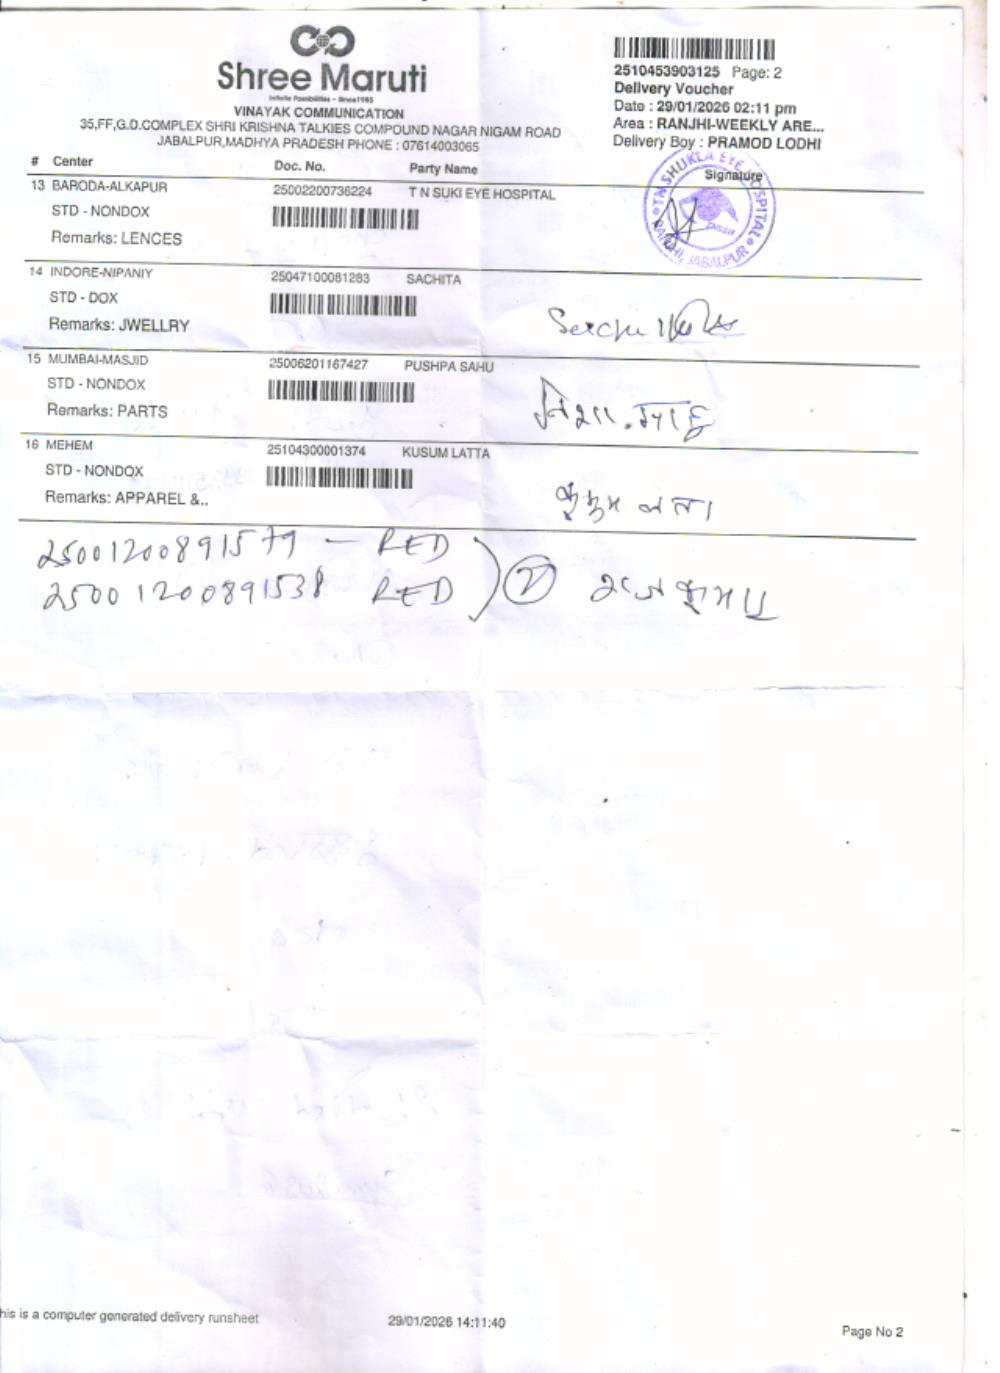 Shree Maruti
Infinite Possibilities - Since1985
VINAYAK COMMUNICATION
35,FF,G.D.COMPLEX SHRI KRISHNA TALKIES COMPOUND NAGAR NIGAM ROAD
JABALPUR,MADHYA PRADESH PHONE : 07614003065
2510453903125 Page: 2
Delivery Voucher
Date : 29/01/2026 02:11 pm
Area : RANJHI-WEEKLY ARE...
Delivery Boy : PRAMOD LODHI
# Center Doc. No. Party Name Signature
13 BARODA-ALKAPUR 25002200736224 T N SUKI EYE HOSPITAL
STD - NONDOX
Remarks: LENCES
T.N. SHUKLA EYE HOSPITAL
RANJHI, JABALPUR
14 INDORE-NIPANIY 25047100081283 SACHITA
STD - DOX
Remarks: JWELLRY
15 MUMBAI-MASJID 25006201167427 PUSHPA SAHU
STD - NONDOX
Remarks: PARTS
16 MEHEM 25104300001374 KUSUM LATTA
STD - NONDOX
Remarks: APPAREL &..
कुसुम लता
25001200891579 - RED
25001200891538 RED
his is a computer generated delivery runsheet 29/01/2026 14:11:40 Page No 2